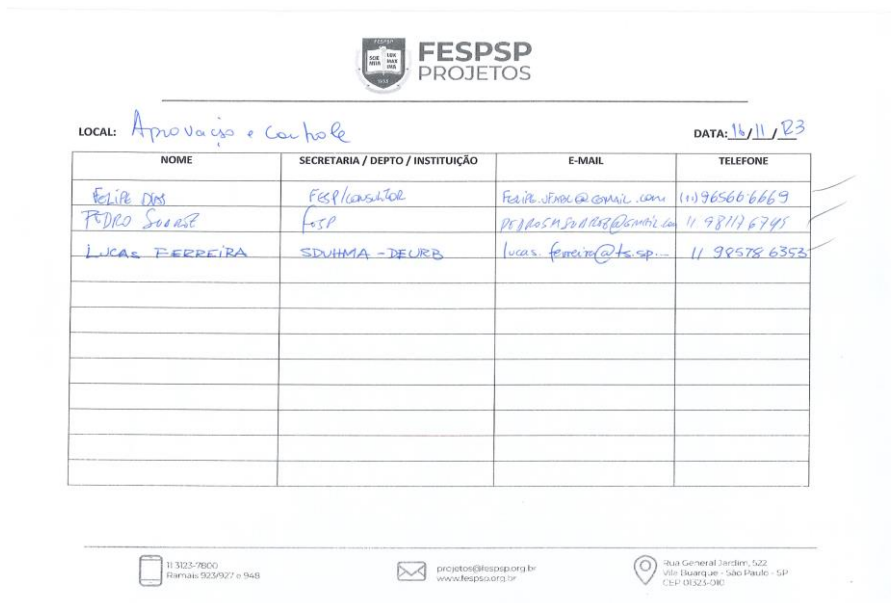 FESPSP
SCIENTIA
LUX
MAXIMA
1933
FESPSP
PROJETOS
LOCAL: Aprovação e Controle DATA: 16/11/23
NOME SECRETARIA / DEPTO / INSTITUIÇÃO E-MAIL TELEFONE
FELIPE DIAS FESP/CONSULTOR @gmail.com (11) 965666669
PEDRO SUAREZ FESP PEDROSMSUAREZ@GMAIL.COM 11 981176745
LUCAS FERREIRA SDUHMA - DEURB lucas.ferreira@ts.sp... 11 98578 6353
11 3123-7800
Ramais 923/927 e 948
projetos@fespsp.org.br
www.fespsp.org.br
Rua General Jardim, 522
Vila Buarque - São Paulo - SP
CEP 01323-010